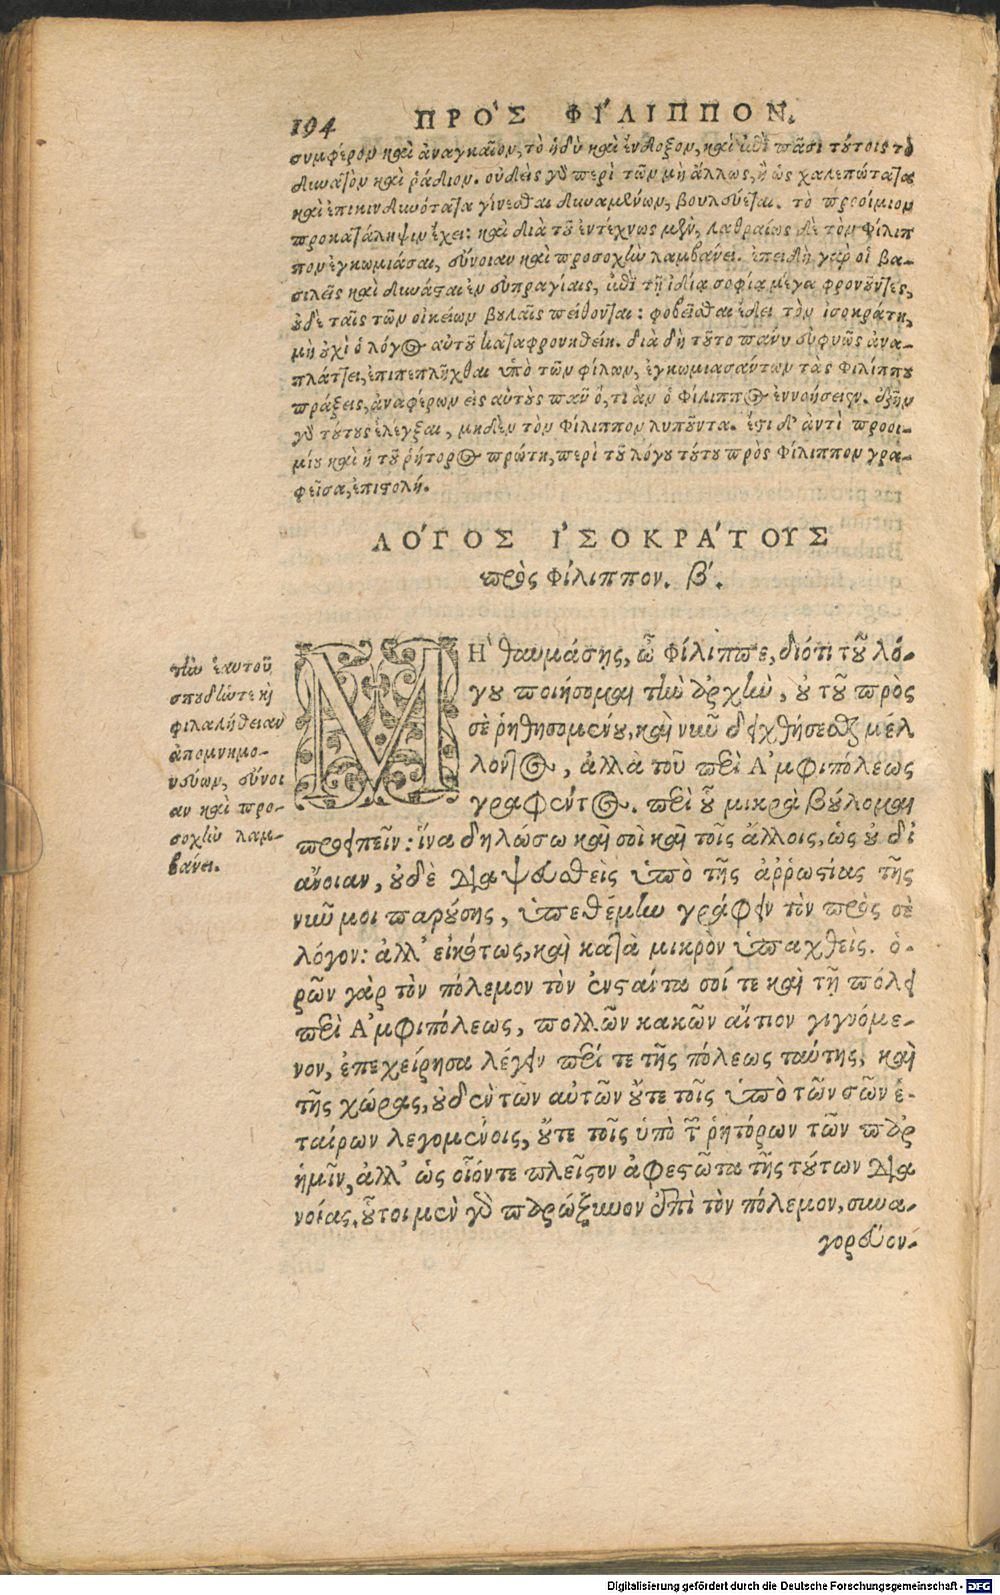 194 ΠΡΟ'Σ ΦΙ'ΛΙΠΠΟΝ.
συμφέρον καὶ ἀναγκαῖον, τὸ ἡδὺ καὶ ἔνδοξον, καὶ ἐπὶ πᾶσι τούτοις τὸ
δυνατὸν καὶ ῥᾴδιον. οὐδεὶς γὸ περὶ τῶν μὴ ἄλλως, ἢ ὡς χαλεπώτατα
καὶ ἐπικινδυνότατα γίνεσθαι δυναμένων, βουλεύεται. τὸ προοίμιον
προκατάληψιν ἔχει: καὶ διὰ τοῦ ἐντέχνως μὲν, λαθραίως δὲ τὸν Φίλιπ
πον ἐγκωμιάσαι, εὔνοιαν καὶ προσοχὴν λαμβάνει. ἐπειδὴ γὰρ οἱ βα-
σιλεῖς καὶ δυνάσται ἐν εὐπραγίαις, ἐπὶ τῇ ἰδίᾳ σοφίᾳ μέγα φρονοῦντες,
οὐδὲ ταῖς τῶν οἰκείων βουλαῖς πείθονται: φοβεῖσθαι ἔδει τὸν ἰσοκράτη,
μὴ οὐχὶ ὁ λόγος αὐτοῦ καταφρονηθείη. διὰ δὴ τοῦτο πάνυ εὐφυῶς ἀνα-
πλάττει, ἐπιπεπλῆχθαι ὑπὸ τῶν φίλων, ἐγκωμιασάντων τὰς Φιλίππου
πράξεις, ἀναφέρων εἰς αὐτοὺς πᾶν ὅ, τι ἂν ὁ Φίλιππος ἐννοήσειεν. ἐξῆν
γὸ τούτους ἐλέγξαι, μηδὲν τὸν Φίλιππον λυποῦντα. ἔστι δ' ἀντὶ προοι-
μίου καὶ ἡ τοῦ ῥήτορος πρώτη, περὶ τοῦ λόγου τούτου πρὸς Φίλιππον γρα-
φεῖσα, ἐπιστολή.
ΛΟ'ΓΟΣ Ι'ΣΟΚΡΑ'ΤΟΥΣ
πρὸς Φίλιππον. β'.
τὴν ἑαυτοῦ
σπουδήν τε κὶ
φιλαλήθειαν
ἀπομνημο-
νεύων, εὔνοι
αν καὶ προ-
σοχὴν λαμ-
βάνει.
ΜΗ` θαυμάσῃς, ὦ Φίλιππε, διότι τοῦ λό-
γου ποιήσομαι τὴν ἀρχὴν, οὐ τοῦ πρὸς
σὲ ῥηθησομένου, καὶ νῦν δειχθήσεσθαι μέλ
λοντος, ἀλλὰ τοῦ περὶ Α'μφιπόλεως
γραφέντος. περὶ οὗ μικρὰ βούλομαι
προειπεῖν: ἵνα δηλώσω καὶ σοὶ καὶ τοῖς ἄλλοις, ὡς οὐ δι'
ἄνοιαν, οὐδὲ διαψευσθεὶς ὑπὸ τῆς ἀῤῥωστίας τῆς
νῦν μοι παρούσης, ὑπεθέμην γράφειν τὸν πρὸς σὲ
λόγον: ἀλλ' εἰκότως, καὶ κατὰ μικρὸν ὑπαχθείς. ὁ-
ρῶν γὰρ τὸν πόλεμον τὸν ἐνστάντα σοί τε καὶ τῇ πόλει
περὶ Α'μφιπόλεως, πολλῶν κακῶν αἴτιον γιγνόμε-
νον, ἐπεχείρησα λέγειν περί τε τῆς πόλεως ταύτης, καὶ
τῆς χώρας, οὐδὲν τῶν αὐτῶν οὔτε τοῖς ὑπὸ τῶν σῶν ἑ-
ταίρων λεγομένοις, οὔτε τοῖς ὑπὸ τῶν ῥητόρων τῶν παρ'
ἡμῖν, ἀλλ' ὡς οἷόντε πλεῖστον ἀφεστῶτα τῆς τούτων δια
νοίας. οὗτοι μὲν γὸ παρώξυνον ἐπὶ τὸν πόλεμον, συνα-
γορεύον-
Digitalisierung gefördert durch die Deutsche Forschungsgemeinschaft - DFG